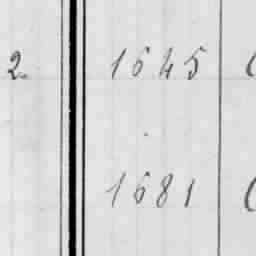 2 1645
1681